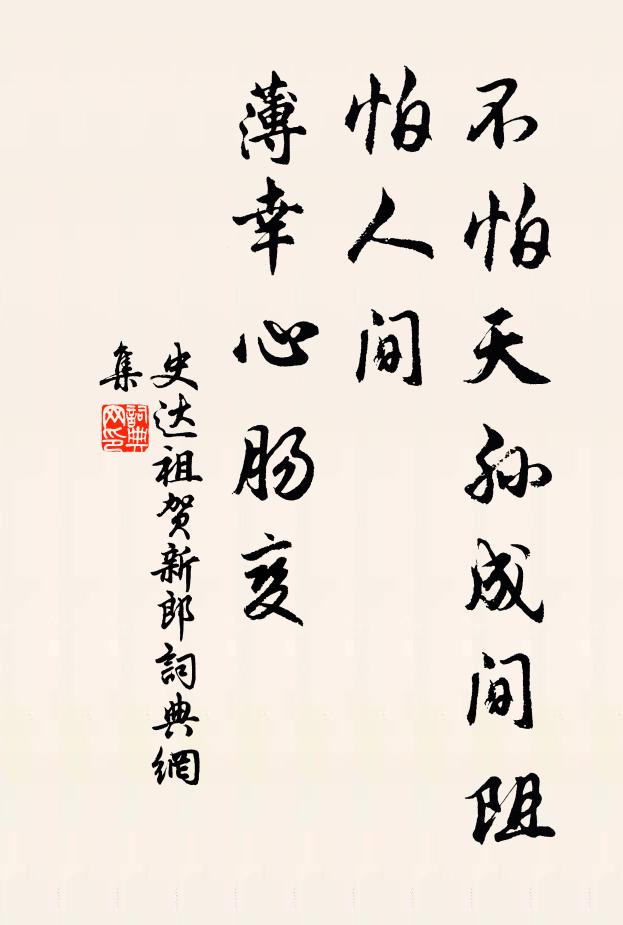 不怕天孙成间阻
怕人间
薄幸心肠变
史达祖贺新郎詞典網
集
詞典
网印